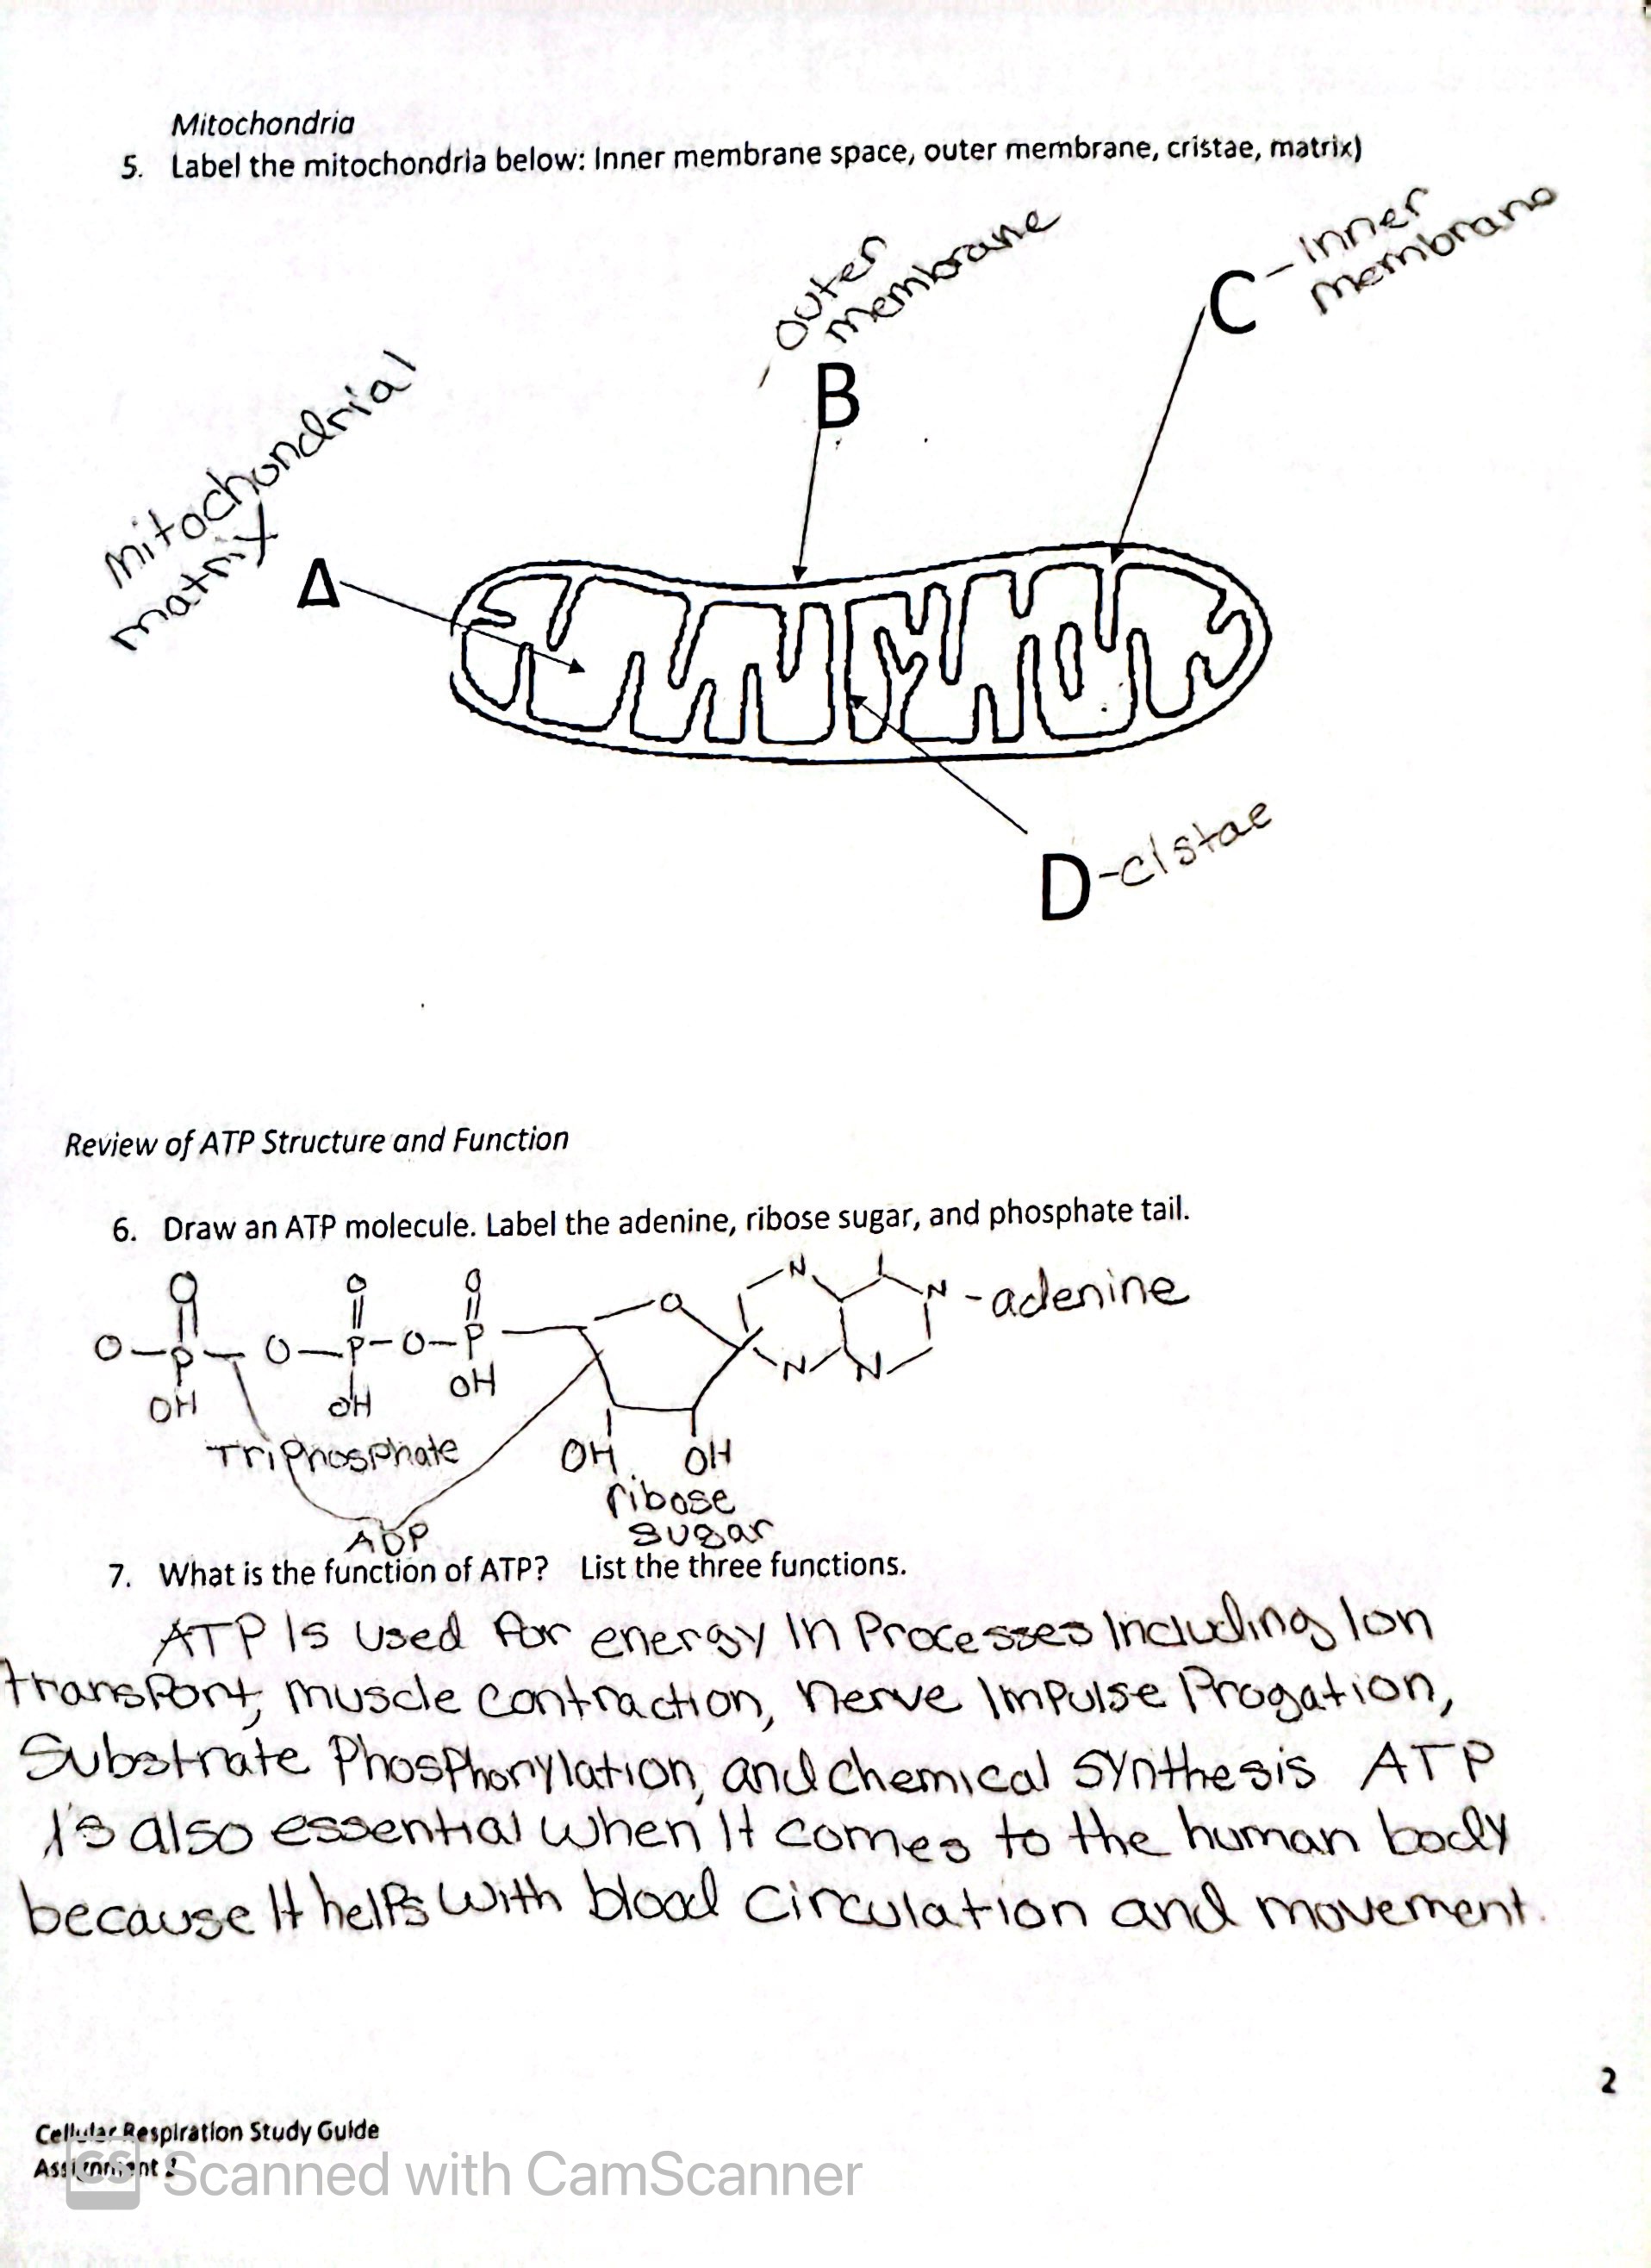 Mitochondria
5. Label the mitochondria below: Inner membrane space, outer membrane, cristae, matrix)
- outer
membrane
C - inner
membrane
B
Mitochondrial
matrix
A
D - cistae
Review of ATP Structure and Function
6. Draw an ATP molecule. Label the adenine, ribose sugar, and phosphate tail.
O O O O N N - adenine
O - P - O - P - O - P
OH OH OH N N
Triphosphate OH OH
ribose
ADP sugar
7. What is the function of ATP? List the three functions.
ATP Is used for energy In Processes Including Ion
transport, muscle contraction, nerve Impulse Progation,
Substrate Phosphorylation, and chemical synthesis ATP
Is also essential when It comes to the human body
because It helps with blood circulation and movement.
2
Cellular Respiration Study Guide
Assignment 2
CS Scanned with CamScanner